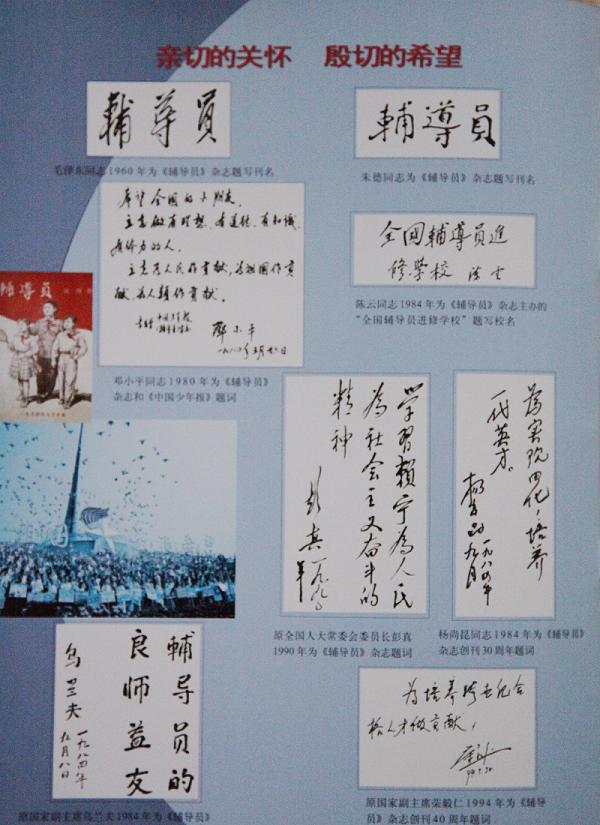 亲切的关怀 殷切的希望
輔导員
毛泽东同志1960年为《辅导员》杂志题写刊名
輔導員
朱德同志为《辅导员》杂志题写刊名
希望全国的小朋友，
立志做有理想、有道德、有知识、
有体力的人，
立志为人民作贡献，为祖国作贡
献，为人类作贡献。
邓小平
全国輔導員進
修学校 陈云
陈云同志1984年为《辅导员》杂志主办的
“全国辅导员进修学校”题写校名
輔導員
邓小平同志1980年为《辅导员》
杂志和《中国少年报》题词
学習賴宁为人民
為社会主义奋斗的
精神
彭真 一九九〇年
原全国人大常委会委员长彭真
1990年为《辅导员》杂志题词
为实现四化，培养
一代英才。
一九八四年
九月
杨尚昆同志1984年为《辅导员》
杂志创刊30周年题词
輔导员的
良师益友
乌兰夫
一九八四年
九月八日
原国家副主席乌兰夫1984年为《辅导员》
为培养跨世纪合
格人才做贡献！
原国家副主席荣毅仁1994年为《辅导
员》杂志创刊40周年题词